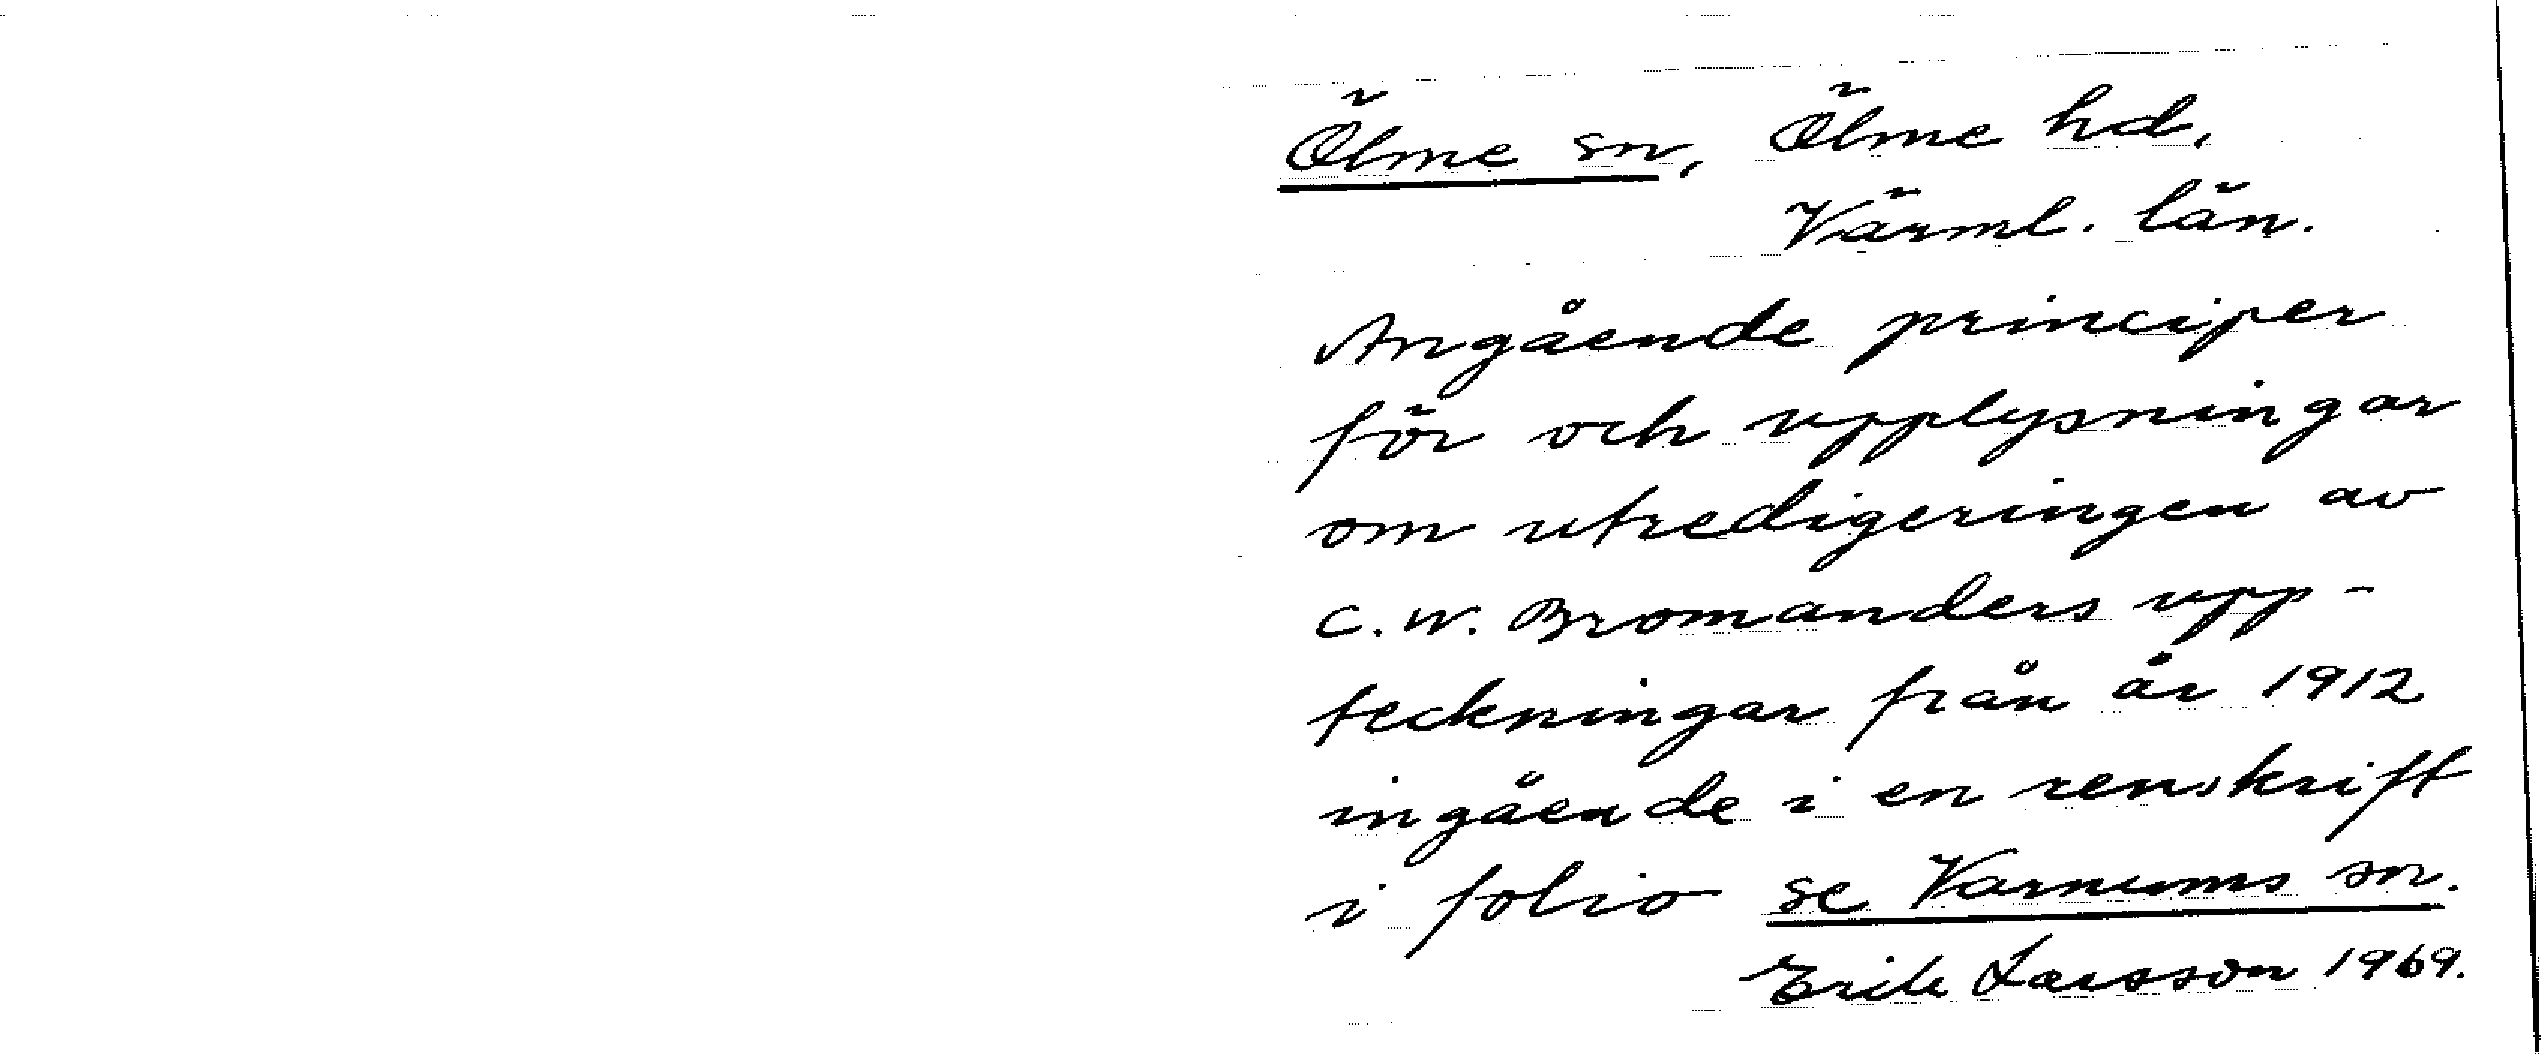 Ölme sn, Ölme hd,
Värml. län.
Angående principer
för och upplysningar
om utredigeringen av
C. W. Bromanders upp-
teckningar från år 1912
ingående i en renskrift
i folio se Varnums sn.
Erik Larsson 1969.